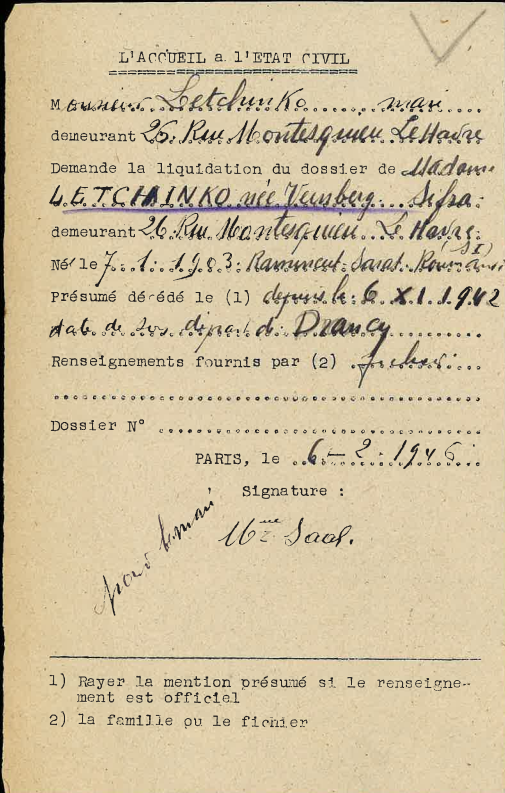 L'ACCUEIL a l'ETAT CIVIL
Monsieur Letchinko, mari
demeurant 26. Rue Montesquieu Le Havre
Demande la liquidation du dossier de Madame
LETCHINKO née Veinberg Sifra
demeurant 26 Rue Montesquieu Le Havre
(SI)
Né le 7. 1. 1903. Sarat Roumanie
Présumé décédé le (1) depuis le 6 XI. 1942
date de son départ de Drancy
Renseignements fournis par (2) fichier
Dossier N°
PARIS, le 6-2-1946
Signature :
Mme Saal.
1) Rayer la mention présumé si le renseigne-
ment est officiel
2) la famille ou le fichier